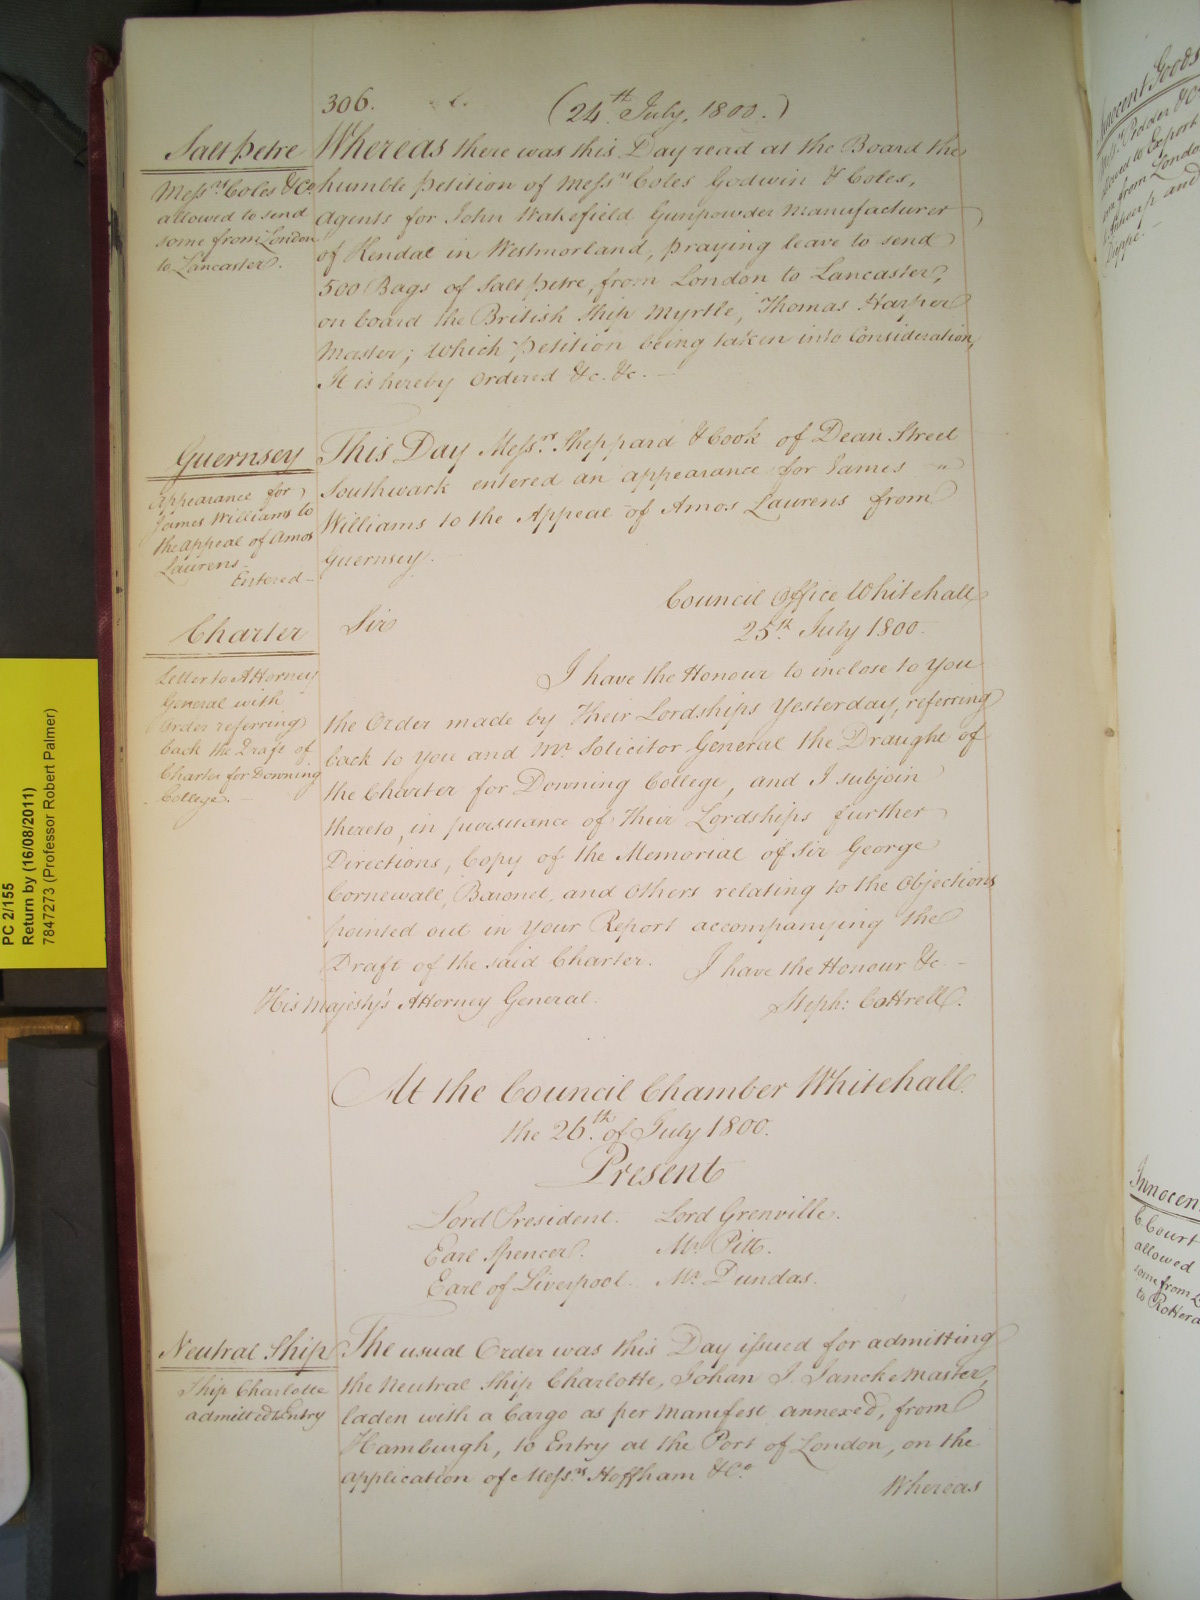 306.
(24th July, 1800.)
Salt petre
Messrs Coles &Co.
allowed to send
some from London
to Lancaster.
Whereas there was this Day read at the Board the
humble petition of Messrs Coles Godwin & Coles,
Agents for John Wakefield Gunpowder Manufacturer
of Kendal in Westmorland, praying leave to send
500 Bags of Salt petre, from London to Lancaster,
on board the British Ship Myrtle, Thomas Harper
Master; Which Petition being taken into Consideration,
It is hereby Ordered &c. &c. —
Guernsey
Appearance for
James Williams to
the Appeal of Amos
Laurens —
Entered —
This Day Messrs Sheppard & Cook of Dean Street
Southwark entered an appearance for James
Williams to the Appeal of Amos Laurens from
Guernsey. —
Council Office Whitehall
25th July 1800.
Charter
Letter to Attorney
General with
Order referring
back the Draft of
Charter for Downing
College. —
Sir
I have the Honour to inclose to You
the Order made by Their Lordships Yesterday, referring
back to You and Mr. Solicitor General the Draught of
the Charter for Downing College, and I subjoin
thereto, in pursuance of Their Lordships further
Directions, Copy of the Memorial of Sir George
Cornewall, Baronet, and Others relating to the Objections
pointed out in Your Report accompanying the
Draft of the said Charter. I have the Honour &c —
His Majesty's Attorney General.
Steph: Cottrell.
At the Council Chamber Whitehall
the 26th. of July 1800.
Present
Lord President. Lord Grenville.
Earl Spencer. Mr. Pitt.
Earl of Liverpool. Mr. Dundas.
Neutral Ship
Ship Charlotte
admitted to Entry
The usual Order was this Day issued for admitting
the Neutral Ship Charlotte, Johan J. Jancke Master,
laden with a Cargo as per Manifest annexed, from
Hamburgh, to Entry at the Port of London, on the
application of Messrs Hoffham & Co.
Whereas
PC 2/155
Return by (16/08/2011)
7847273 (Professor Robert Palmer)
Innocent Goods
from London
and
Dieppe. —
Innocen
C. Court
allowed
some from L
to Rotterd